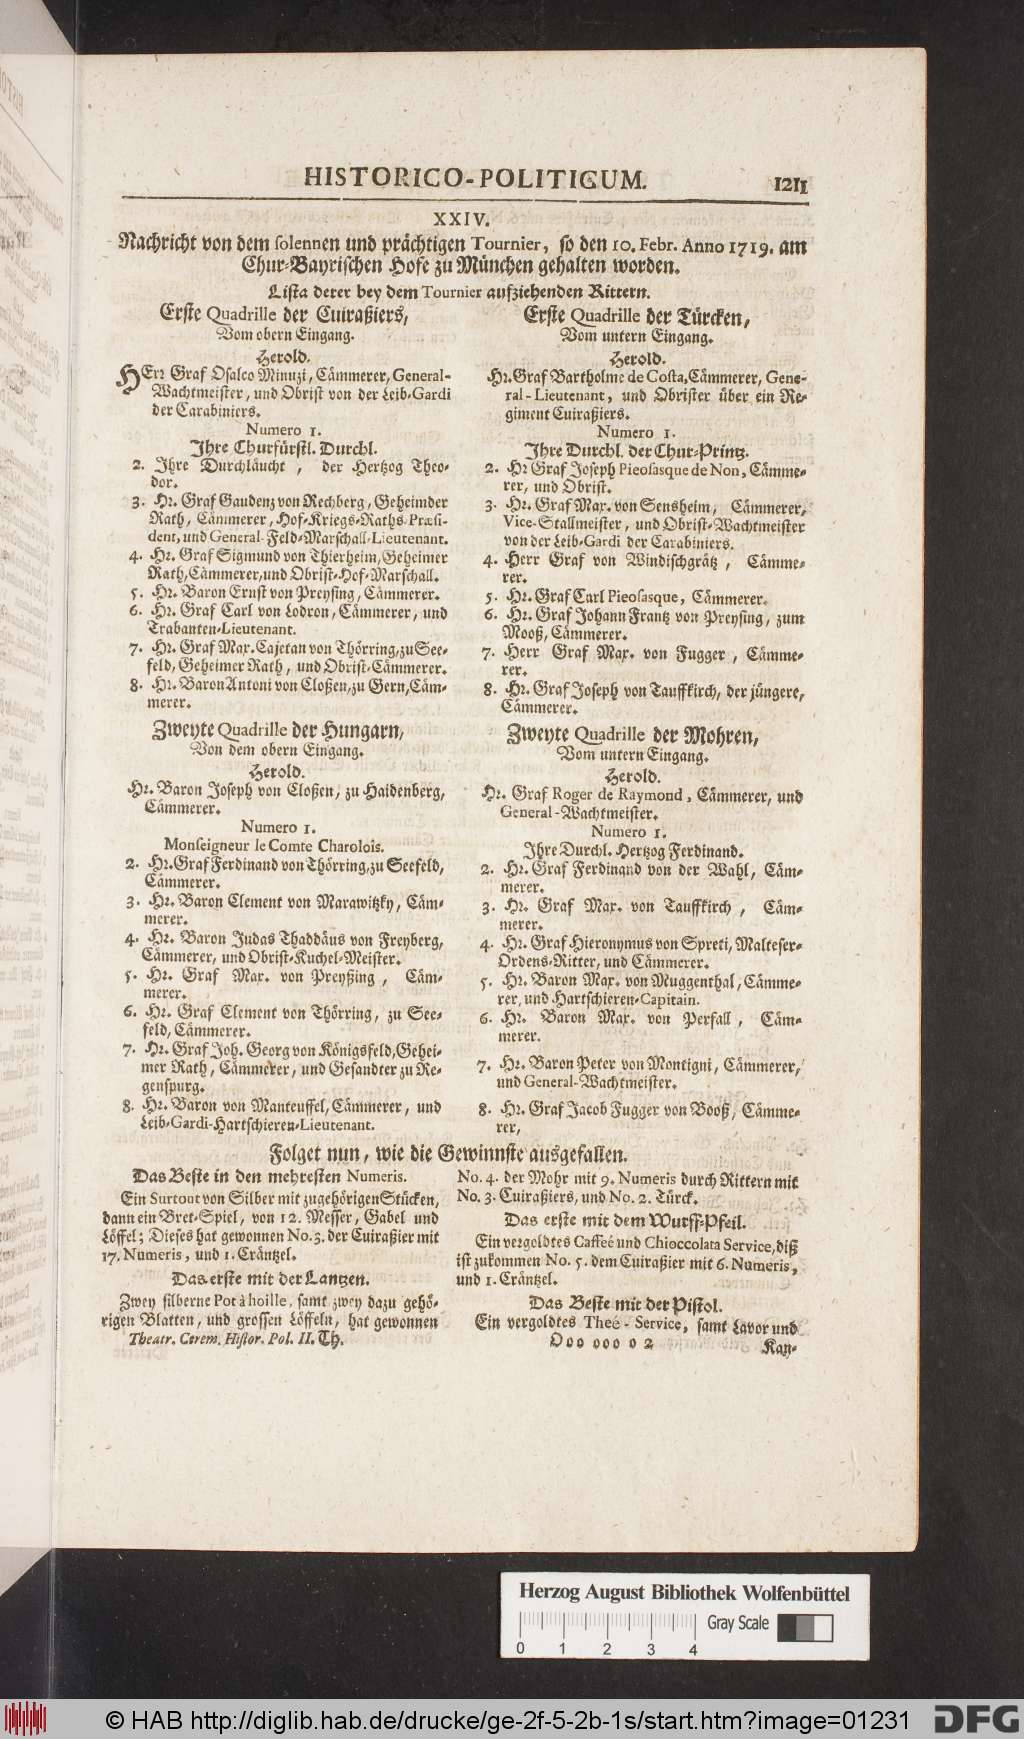 HISTORICO-POLITICUM. 1211
XXIV.
Nachricht von dem solennen und prächtigen Tournier, so den 10. Febr. Anno 1719. am
Chur-Bayrischen Hofe zu München gehalten worden.
Lista derer bey dem Tournier aufziehenden Rittern.
Erste Quadrille der Cuiraßiers,
Vom obern Eingang.
Herold.
HErr Graf Osalco Minuzi, Cämmerer, General-
Wachtmeister, und Obrist von der Leib-Gardi
der Carabiniers.
Numero 1.
Ihre Churfürstl. Durchl.
2. Ihre Durchläucht, der Hertzog Theo-
dor.
3. Hr. Graf Gaudenz von Rechberg, Geheimder
Rath, Cämmerer, Hof-Kriegs-Raths-Præsi-
dent, und General-Feld-Marschall-Lieutenant.
4. Hr. Graf Sigmund von Thierheim, Geheimer
Rath, Cämmerer, und Obrist-Hof-Marschall.
5. Hr. Baron Ernst von Preysing, Cämmerer.
6. Hr. Graf Carl von Lodron, Cämmerer, und
Trabanten-Lieutenant.
7. Hr. Graf Max. Cajetan von Thörring, zu See-
feld, Geheimer Rath, und Obrist-Cämmerer.
8. Hr. Baron Antoni von Cloßen, zu Gern, Cäm-
merer.
Zweyte Quadrille der Hungarn,
Von dem obern Eingang.
Herold.
Hr. Baron Joseph von Cloßen, zu Haidenberg,
Cämmerer.
Numero 1.
Monseigneur le Comte Charolois.
2. Hr. Graf Ferdinand von Thörring, zu Seefeld,
Cämmerer.
3. Hr. Baron Clement von Marawitzky, Cäm-
merer.
4. Hr. Baron Judas Thaddäus von Freyberg,
Cämmerer, und Obrist-Kuchel-Meister.
5. Hr. Graf Max. von Preyßing, Cäm-
merer.
6. Hr. Graf Clement von Thörring, zu See-
feld, Cämmerer.
7. Hr. Graf Joh. Georg von Königsfeld, Gehei-
mer Rath, Cämmerer, und Gesandter zu Re-
genspurg.
8. Hr. Baron von Manteuffel, Cämmerer, und
Leib-Gardi-Hartschieren-Lieutenant.
Erste Quadrille der Türcken,
Vom untern Eingang.
Herold.
Hr. Graf Bartholme de Costa, Cämmerer, Gene-
ral-Lieutenant, und Obrister über ein Re-
giment Cuiraßiers.
Numero 1.
Ihre Durchl. der Chur-Printz.
2. Hr Graf Joseph Pieosasque de Non, Cämme-
rer, und Obrist.
3. Hr. Graf Max. von Sensheim, Cämmerer,
Vice-Stallmeister, und Obrist-Wachtmeister
von der Leib-Gardi der Carabiniers.
4. Herr Graf von Windischgrätz, Cämme-
rer.
5. Hr. Graf Carl Pieosasque, Cämmerer.
6. Hr. Graf Johann Frantz von Preysing, zum
Mooß, Cämmerer.
7. Herr Graf Max. von Fugger, Cämme-
rer.
8. Hr. Graf Joseph von Tauffkirch, der jüngere,
Cämmerer.
Zweyte Quadrille der Mohren,
Vom untern Eingang.
Herold.
Hr. Graf Roger de Raymond, Cämmerer, und
General-Wachtmeister.
Numero 1.
Ihre Durchl. Hertzog Ferdinand.
2. Hr. Graf Ferdinand von der Wahl, Cäm-
merer.
3. Hr. Graf Max. von Tauffkirch, Cäm-
merer.
4. Hr. Graf Hieronymus von Spreti, Malteser-
Ordens-Ritter, und Cämmerer.
5. Hr. Baron Max. von Muggenthal, Cämme-
rer, und Hartschieren-Capitain.
6. Hr. Baron Max. von Perfall, Cäm-
merer.
7. Hr. Baron Peter von Montigni, Cämmerer,
und General-Wachtmeister.
8. Hr. Graf Jacob Fugger von Booß, Cämme-
rer,
Folget nun, wie die Gewinnste ausgefallen.
Das Beste in den mehresten Numeris.
Ein Surtout von Silber mit zugehörigen Stücken,
dann ein Bret-Spiel, von 12. Messer, Gabel und
Löffel; Dieses hat gewonnen No. 3. der Cuiraßier mit
17. Numeris, und 1. Cräntzel.
Das erste mit der Lantzen.
Zwey silberne Pot à hoille, samt zwey dazu gehö-
rigen Blatten, und grossen Löffeln, hat gewonnen
Theatr. Cerem. Histor. Pol. II. Th.
No. 4. der Mohr mit 9. Numeris durch Rittern mit
No. 3. Cuiraßiers, und No. 2. Türck.
Das erste mit dem Wurff-Pfeil.
Ein vergoldtes Caffeé und Chioccolata Service, diß
ist zukommen No. 5. dem Cuiraßier mit 6. Numeris,
und 1. Cräntzel.
Das Beste mit der Pistol.
Ein vergoldtes Theé-Service, samt Lavor und
Ooo ooo o 2 Kan-
Herzog August Bibliothek Wolfenbüttel
Gray Scale
0 1 2 3 4
© HAB http://diglib.hab.de/drucke/ge-2f-5-2b-1s/start.htm?image=01231 DFG